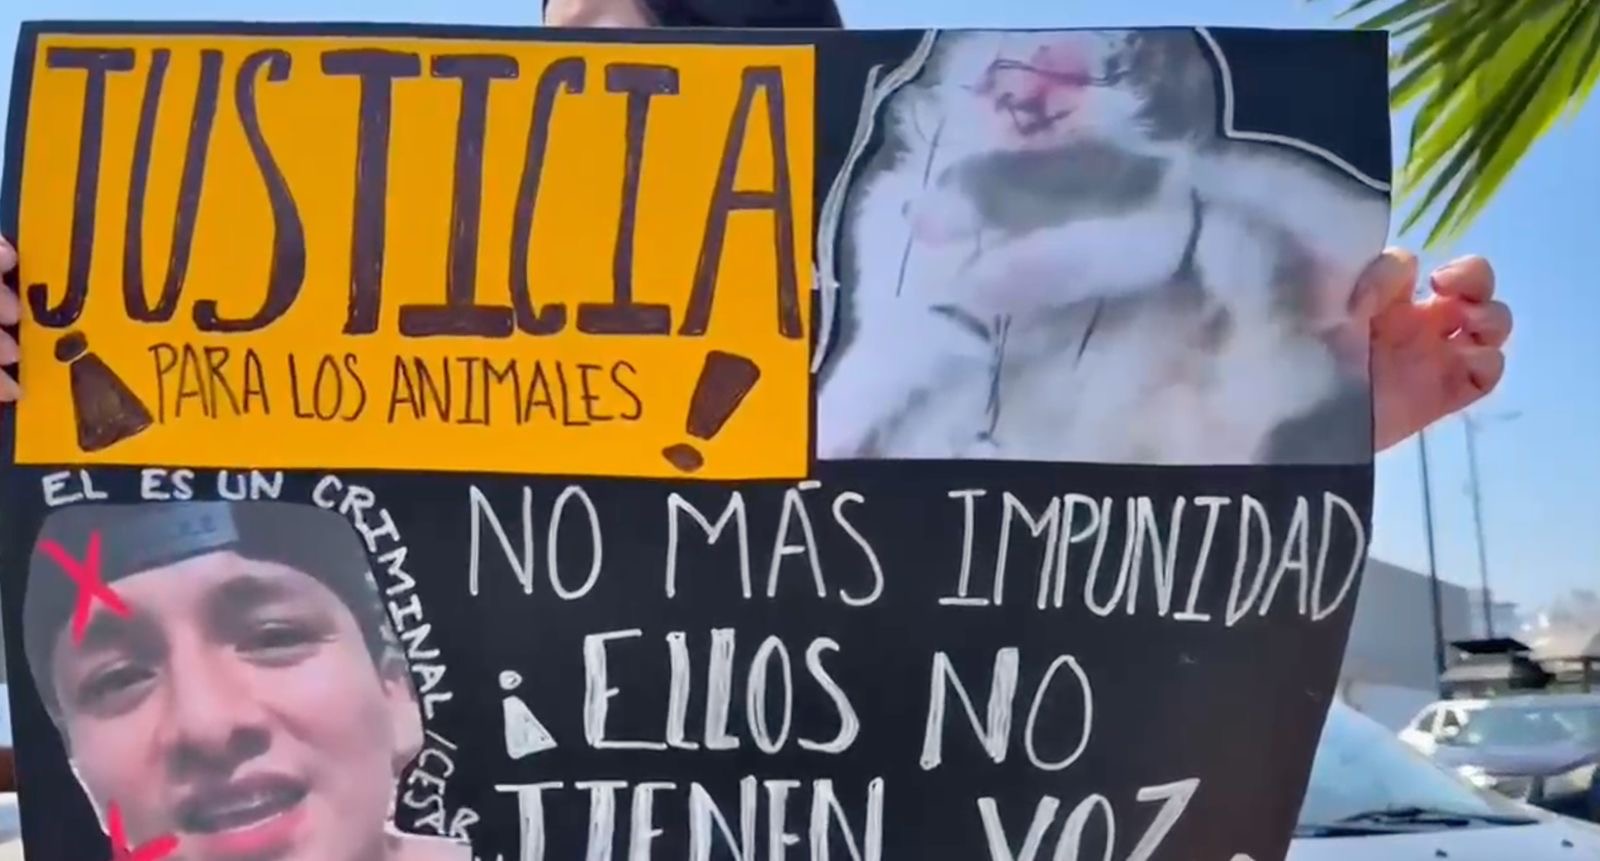 JUSTICIA
¡PARA LOS ANIMALES!
EL ES UN CRIMINAL/CESAR
NO MÁS IMPUNIDAD
¡ELLOS NO
TIENEN VOZ